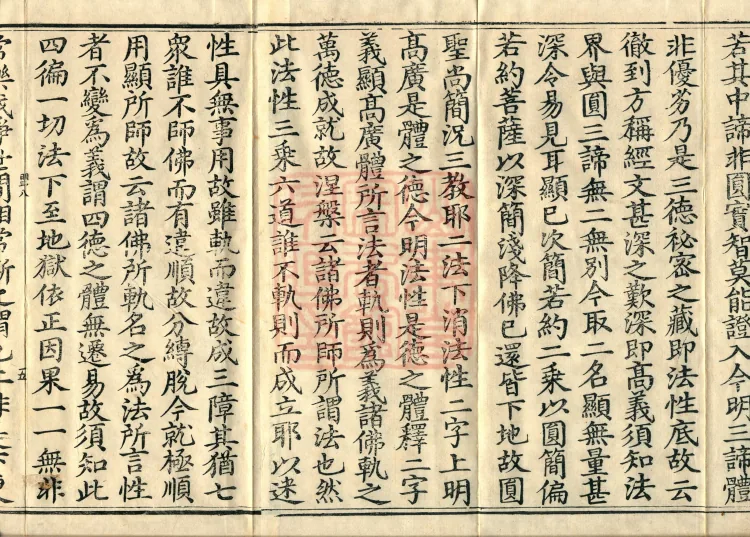 若其中諦非圓實智莫能證入今明三諦體
非優劣乃是三德祕密之藏即法性底故云
徹到方稱經文甚深之歎深即高義須知法
界與圓三諦無二無別今取二名顯無量甚
深令易見耳顯已次簡若約二乘以圓簡偏
若約菩薩以深簡淺降佛已還皆下地故圓
聖尚簡況三教耶二法下消法性二字上明
高廣是體之德今明法性是德之體釋二字
義顯高廣體所言法者軌則為義諸佛軌之
萬德成就故涅槃云諸佛所師所謂法也然
此法性三乘六道誰不軌則而成立耶以迷
性具無事用故雖執而違故成三障其猶七
衆誰不師佛而有違順故分縛脫今就極順
用顯所師故云諸佛所軌名之為法所言性
者不變為義謂四德之體無遷易故須知此
四徧一切法下至地獄依正因果一一無非
五